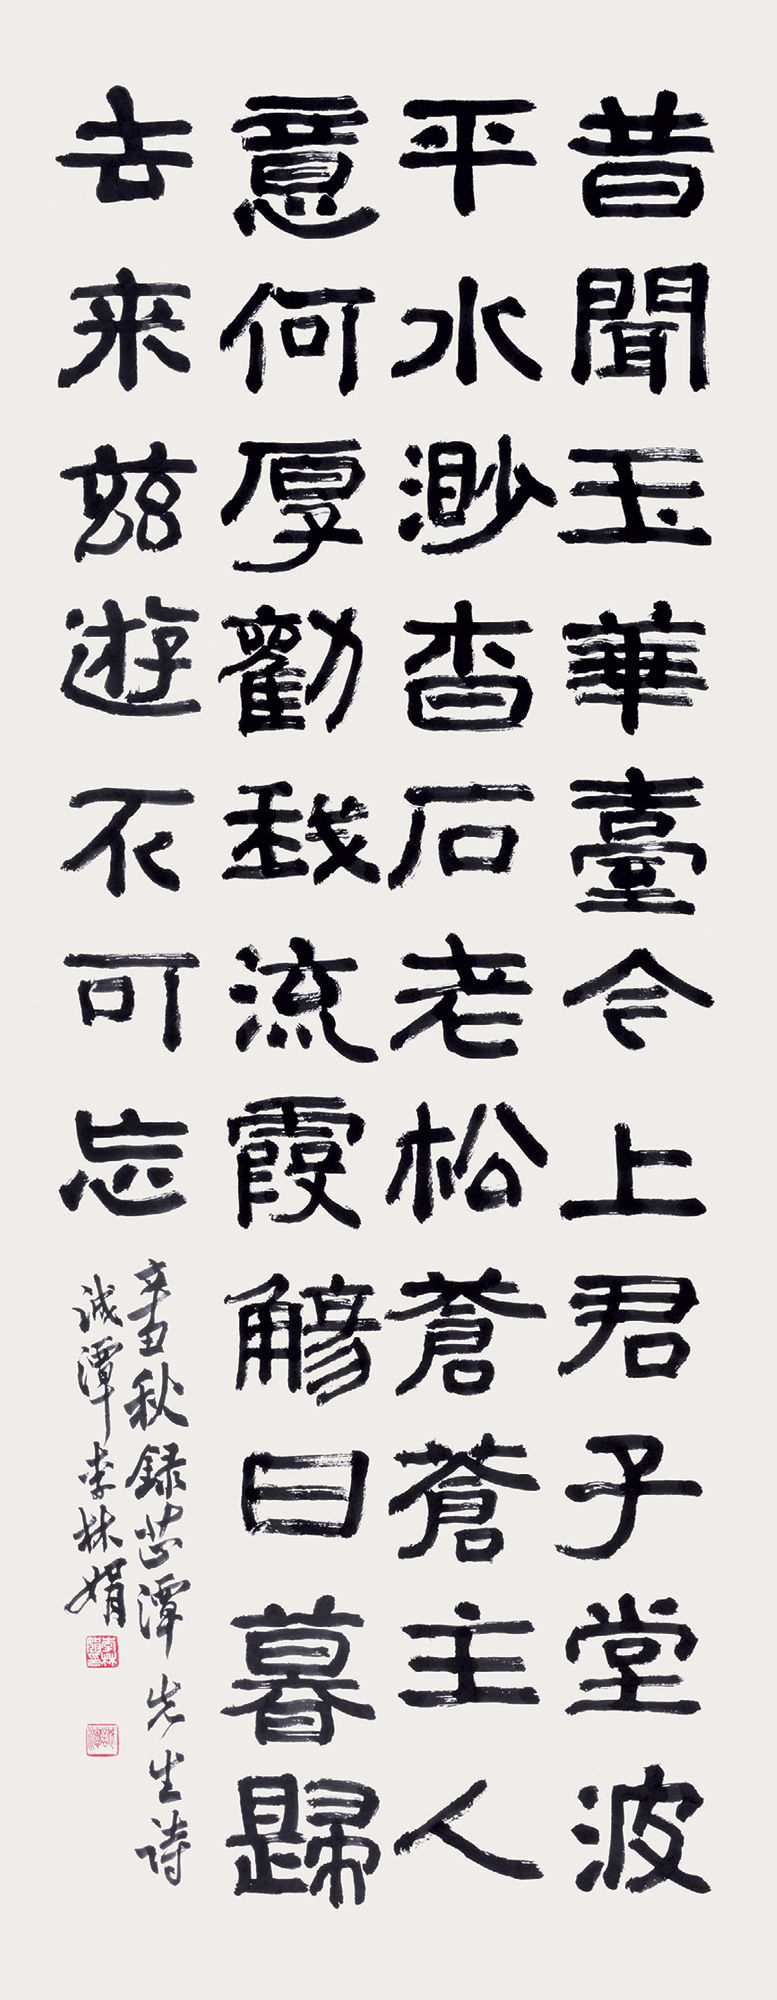 昔聞玉華臺今上君子堂波
平水渺杳石老松蒼蒼主人
意何厚勸我流霞觴日暮歸
去來兹遊不可忘
辛丑秋録芷潭先生詩
誠潭李林娟